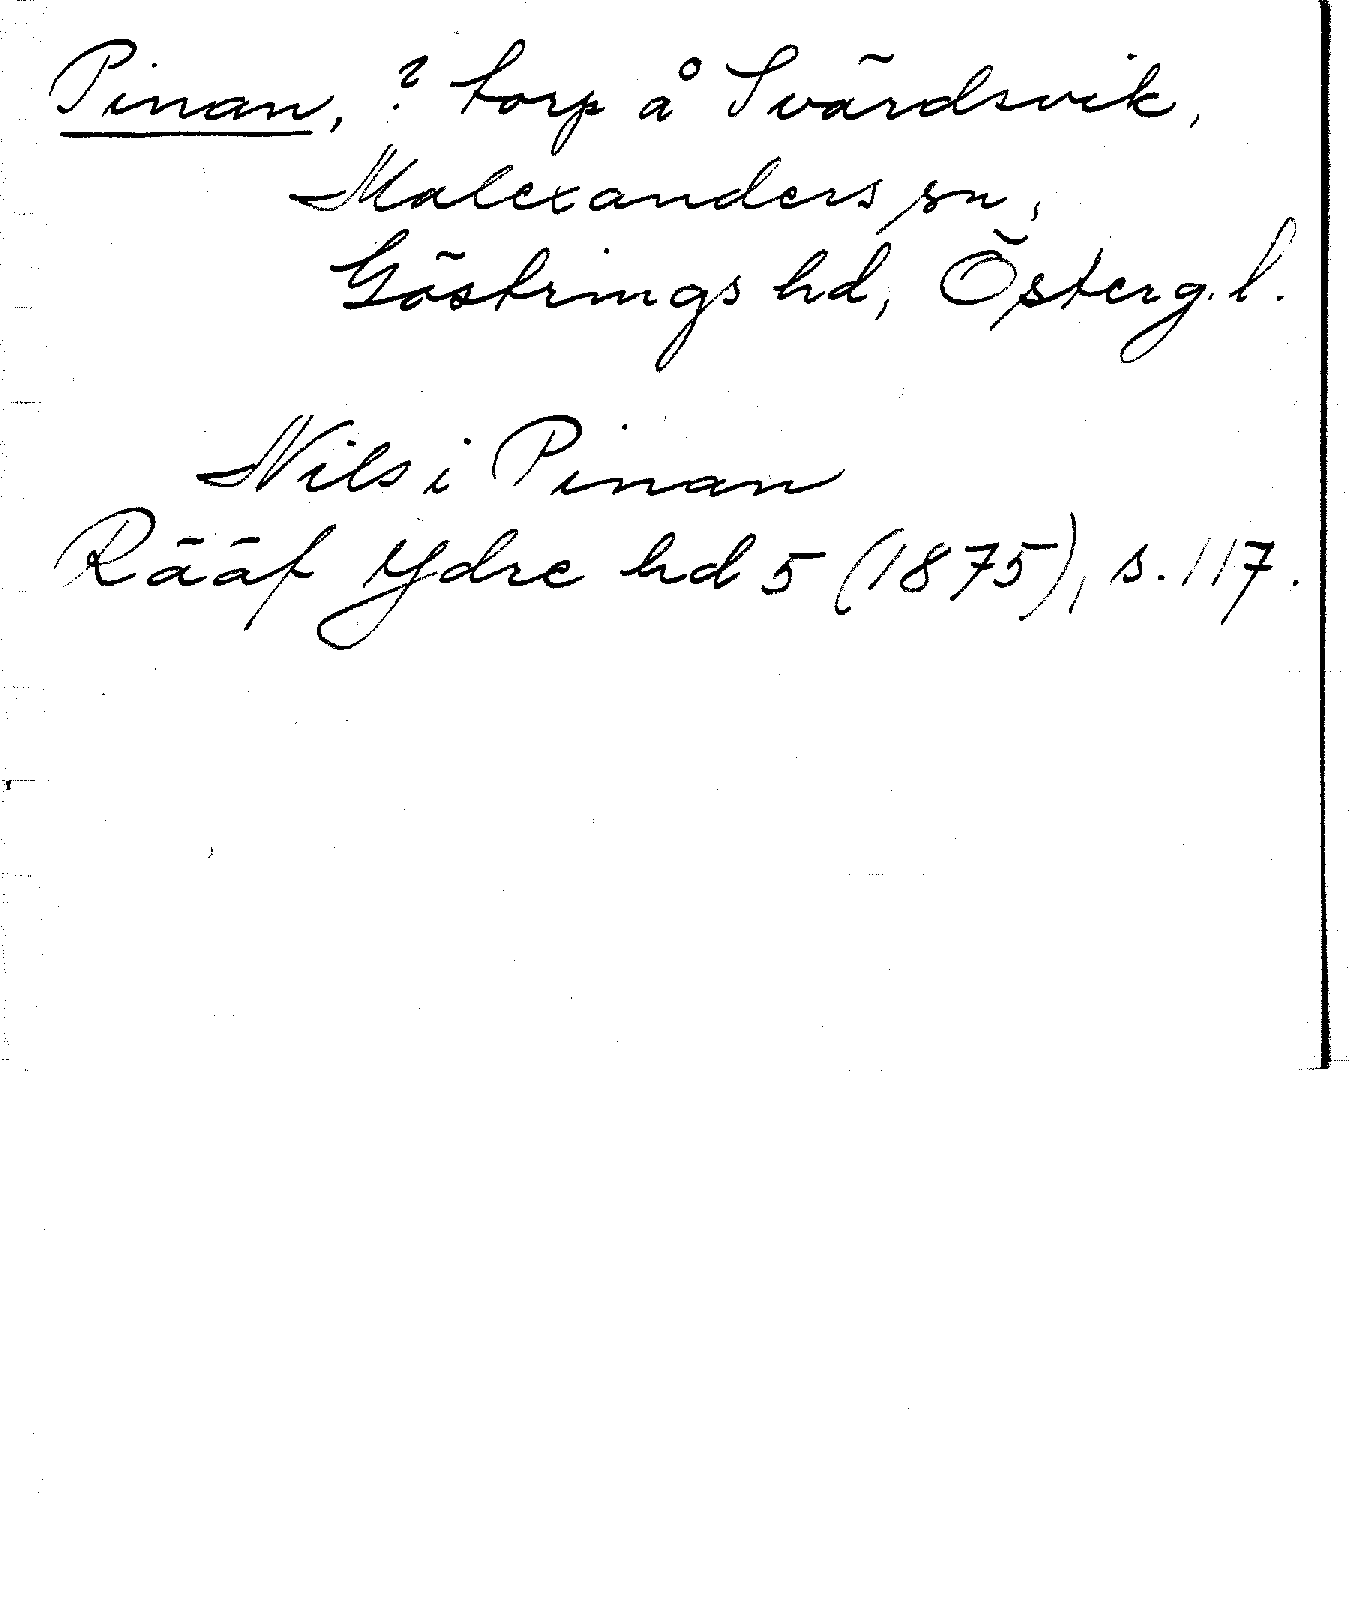 Pinan, ? torp å Svärdsvik,
Malexanders sn,
Göstrings hd, Österg. l.
Nils i Pinan
Rääf Ydre hd 5 (1875), s. 117.